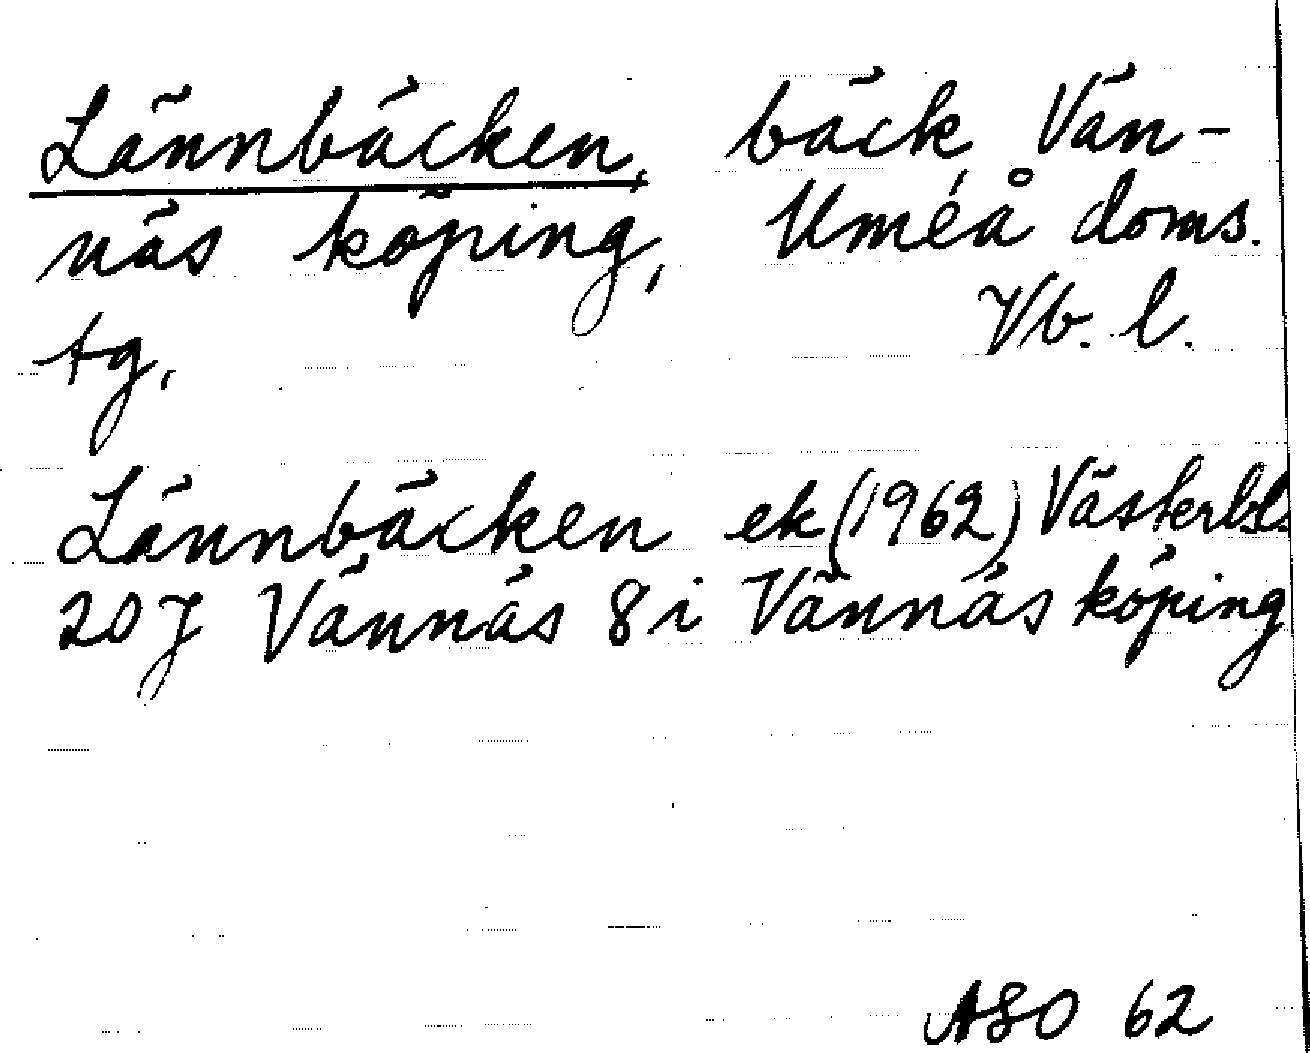 Lännbäcken, bäck, Vän-
näs köping, Umeå doms.
tg, Vb. l.
Lännbäcken ek (1962) Västerbl.
20J Vännäs 8i Vännäs köping
ASO 62